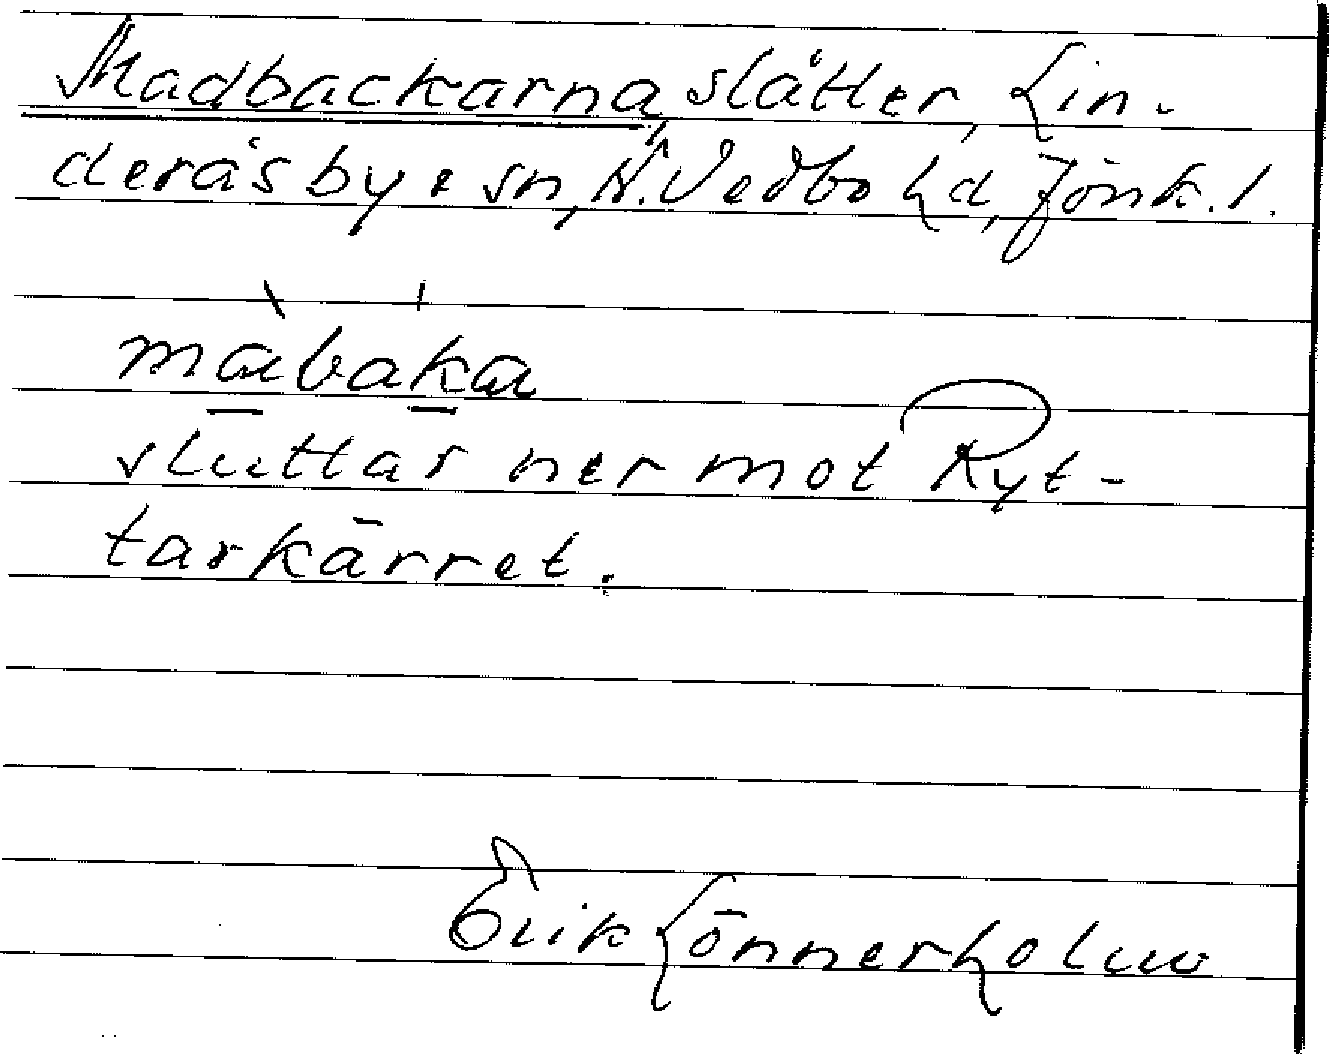 Madbackarna, slåtter, Lin-
deråsby & sn, N. Vedbo hd, Jönk. l.
màbaka
sluttar ner mot Ryt-
tarkärret.
Erik Lönnerholm